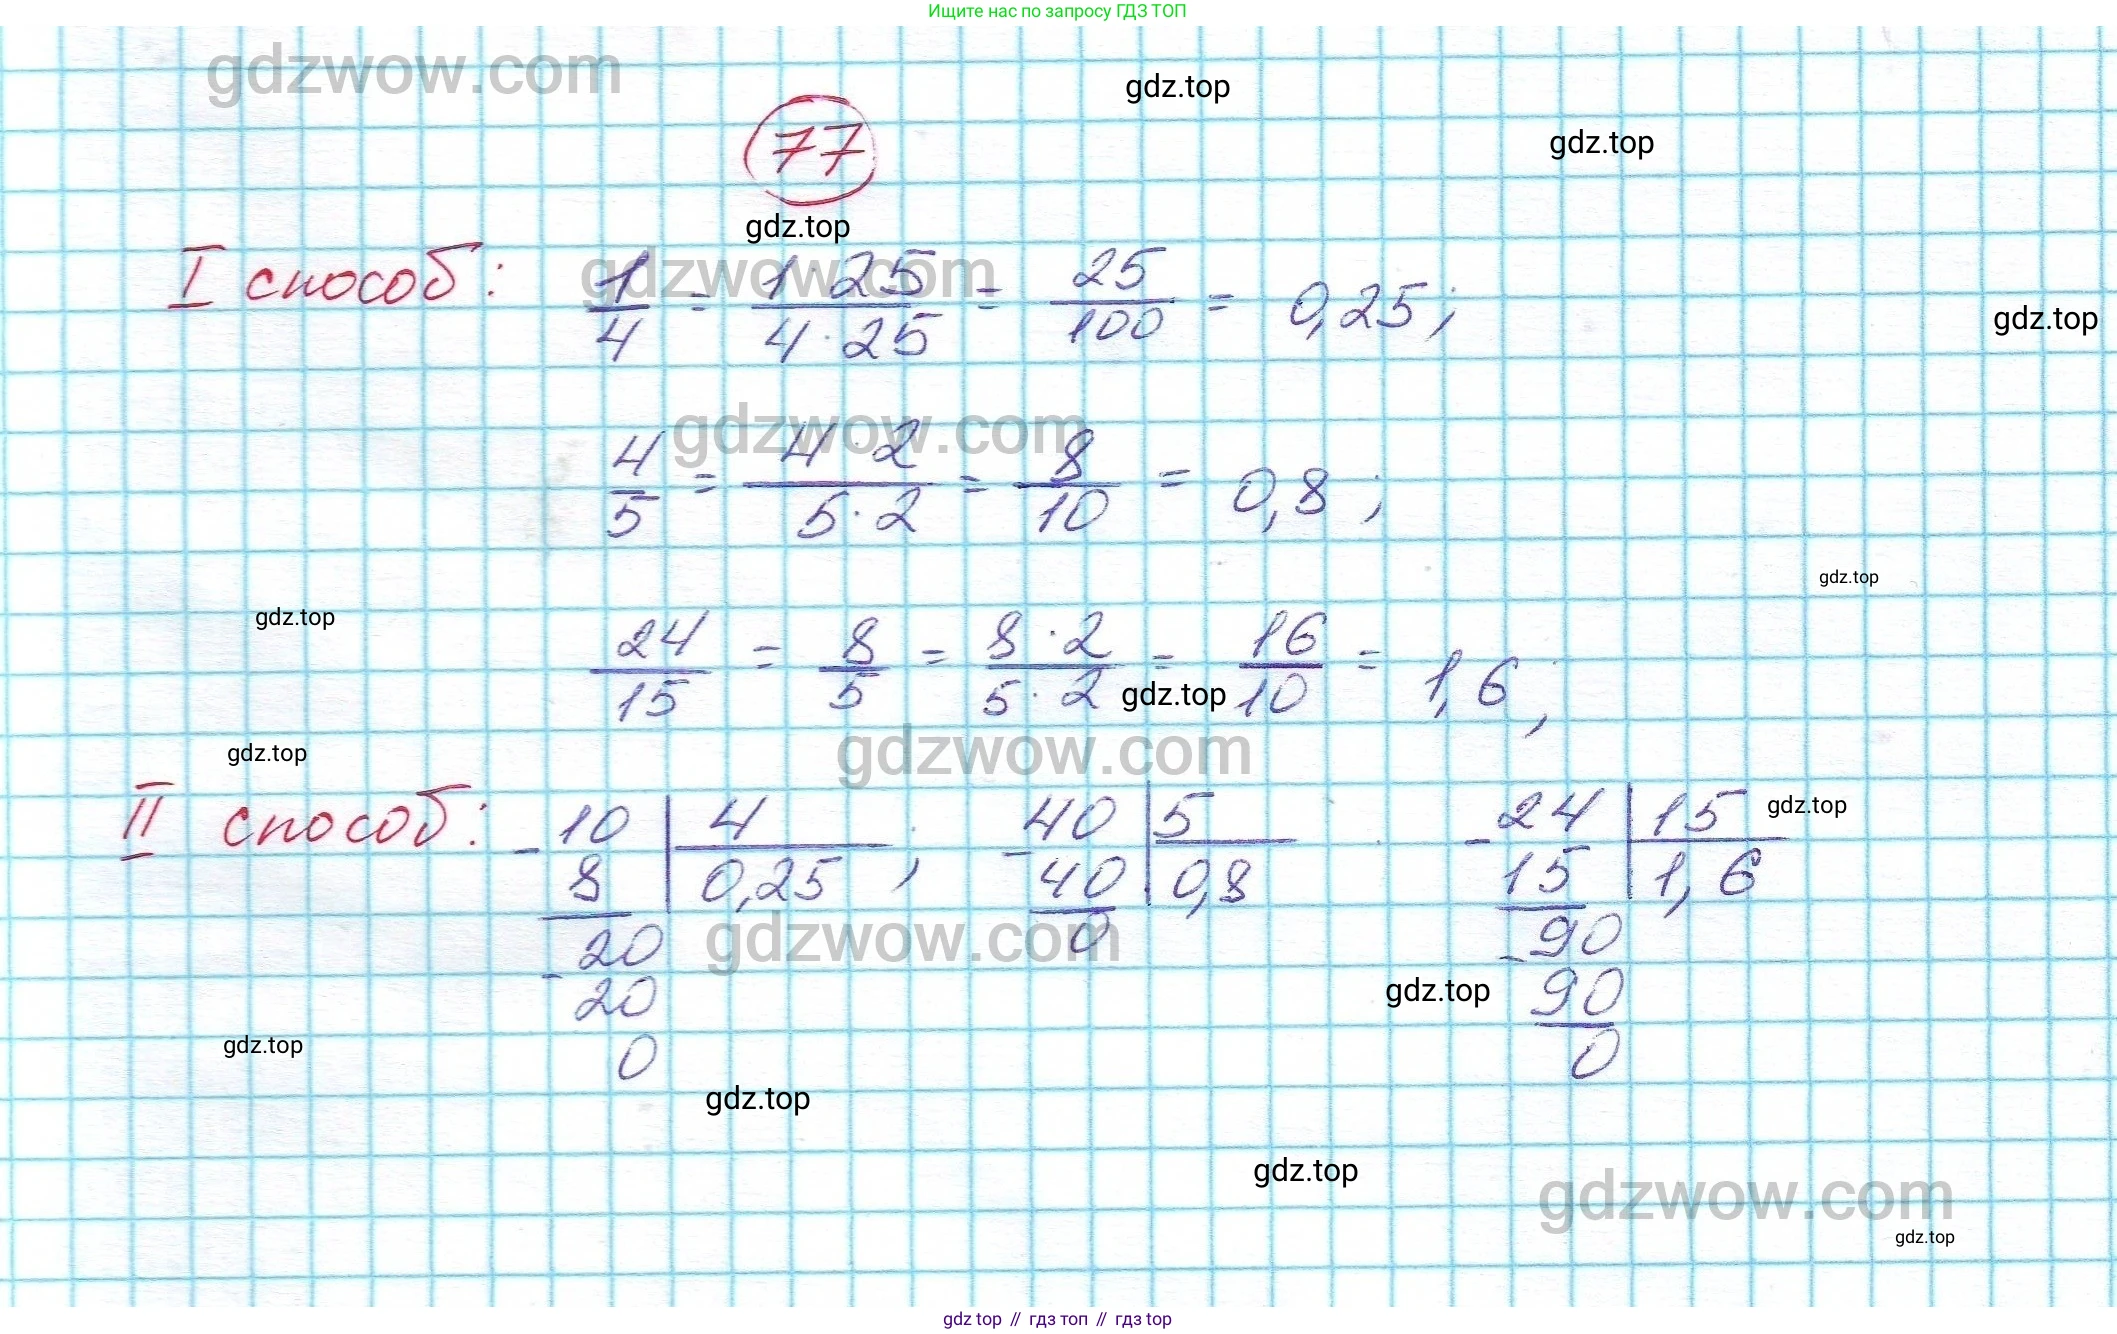 Ищите нас по запросу ГДЗ ТОП
gdzwow.com
gdz.top
gdz.top
77
gdz.top
gdzwow.com
I способ: 1/4 = 1·25/4·25 = 25/100 = 0,25;
gdz.top
gdzwow.com
4/5 = 4·2/5·2 = 8/10 = 0,8;
gdz.top
gdz.top
24/15 = 8/5 = 8·2/5·2 = 16/10 = 1,6;
gdz.top
gdz.top
gdzwow.com
II способ: - 10 | 4 ; - 40 | 5 - 24 | 15
gdz.top
8 | 0,25 40 | 0,8 15 | 1,6
gdzwow.com
- 20 0 - 90
20 90
gdz.top
0 0
gdz.top
gdz.top
gdz.top
gdzwow.com
gdz.top
gdz top // гдз топ // гдз top